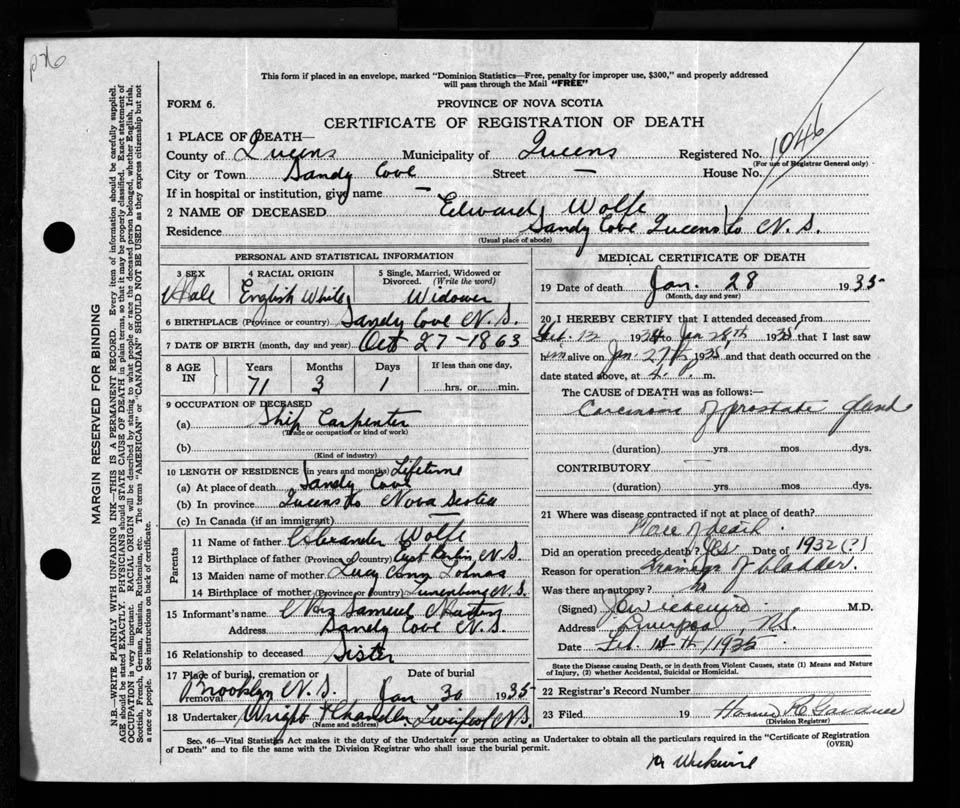 This form if placed in an envelope, marked "Dominion Statistics—Free, penalty for improper use, $300," and properly addressed
will pass through the Mail "FREE"
FORM 6.
PROVINCE OF NOVA SCOTIA
CERTIFICATE OF REGISTRATION OF DEATH
1046
1 PLACE OF DEATH—
County of Queens Municipality of Queens Registered No.
(For use of Registrar General only)
City or Town Sandy Cove Street — House No.
If in hospital or institution, give name —
2 NAME OF DECEASED Edward Wolfe
Residence Sandy Cove Queens Co N.S.
(Usual place of abode)
PERSONAL AND STATISTICAL INFORMATION
3 SEX Male
4 RACIAL ORIGIN English White
5 Single, Married, Widowed or Divorced. (Write the word) Widower
6 BIRTHPLACE (Province or country) Sandy Cove N.S.
7 DATE OF BIRTH (month, day and year) Oct 27-1863
8 AGE IN Years 71 Months 3 Days 1 If less than one day, hrs. or min.
9 OCCUPATION OF DECEASED
(a) Ship Carpenter
(Trade or occupation or kind of work)
(b)
(Kind of industry)
10 LENGTH OF RESIDENCE (in years and months) Lifetime
(a) At place of death Sandy Cove
(b) In province Queens Co Nova Scotia
(c) In Canada (if an immigrant) —
Parents
11 Name of father Alexander Wolfe
12 Birthplace of father (Province or country) East Berlin N.S.
13 Maiden name of mother Lucy Ann
14 Birthplace of mother (Province or country) Lunenburg N.S.
15 Informant's name Mrs Samuel
Address Sandy Cove N.S.
16 Relationship to deceased Sister
17 Place of burial, cremation or removal Brooklyn N.S. Date of burial Jan 30 1935
18 Undertaker Wright Chandler Liverpool N.S.
(Name and address)
MEDICAL CERTIFICATE OF DEATH
19 Date of death Jan. 28 1935
(Month, day and year)
20 I HEREBY CERTIFY that I attended deceased from
Feb. 12 1934 to Jan 28th 1935 that I last saw
him alive on Jan. 27th 1935, and that death occurred on the
date stated above, at 4. P. m.
The CAUSE OF DEATH was as follows:
Carcinoma of prostate gland
(duration) yrs mos dys.
CONTRIBUTORY —
(duration) yrs. mos. dys.
21 Where was disease contracted if not at place of death?
Place of death.
Did an operation precede death? Yes Date of 1932 (?)
Reason for operation Drainage of bladder.
Was there an autopsy? No
(Signed) M.D.
Address Liverpool, N.S.
Date Feb. 1935
State the Disease causing Death, or in death from Violent Causes, state (1) Means and Nature
of Injury, (2) whether Accidental, Suicidal or Homicidal.
22 Registrar's Record Number
23 Filed 19
(Division Registrar)
Sec. 46—Vital Statistics Act makes it the duty of the Undertaker or person acting as Undertaker to obtain all the particulars required in the "Certificate of Registration
of Death" and to file the same with the Division Registrar who shall issue the burial permit. (OVER)
MARGIN RESERVED FOR BINDING
N.B.—WRITE PLAINLY WITH UNFADING INK—THIS IS A PERMANENT RECORD. Every item of information should be carefully supplied.
AGE should be stated EXACTLY. PHYSICIANS should STATE CAUSE OF DEATH in plain terms, so that it may be properly classified. Exact statement of
OCCUPATION is very important. RACIAL ORIGIN will be described by stating to what people or race the deceased person belonged, whether English, Irish,
Scottish, French, German, Russian, Ruthenian, etc. The terms "AMERICAN" or "CANADIAN" SHOULD NOT BE USED as they express citizenship but not
a race or people. See instructions on back of certificate.